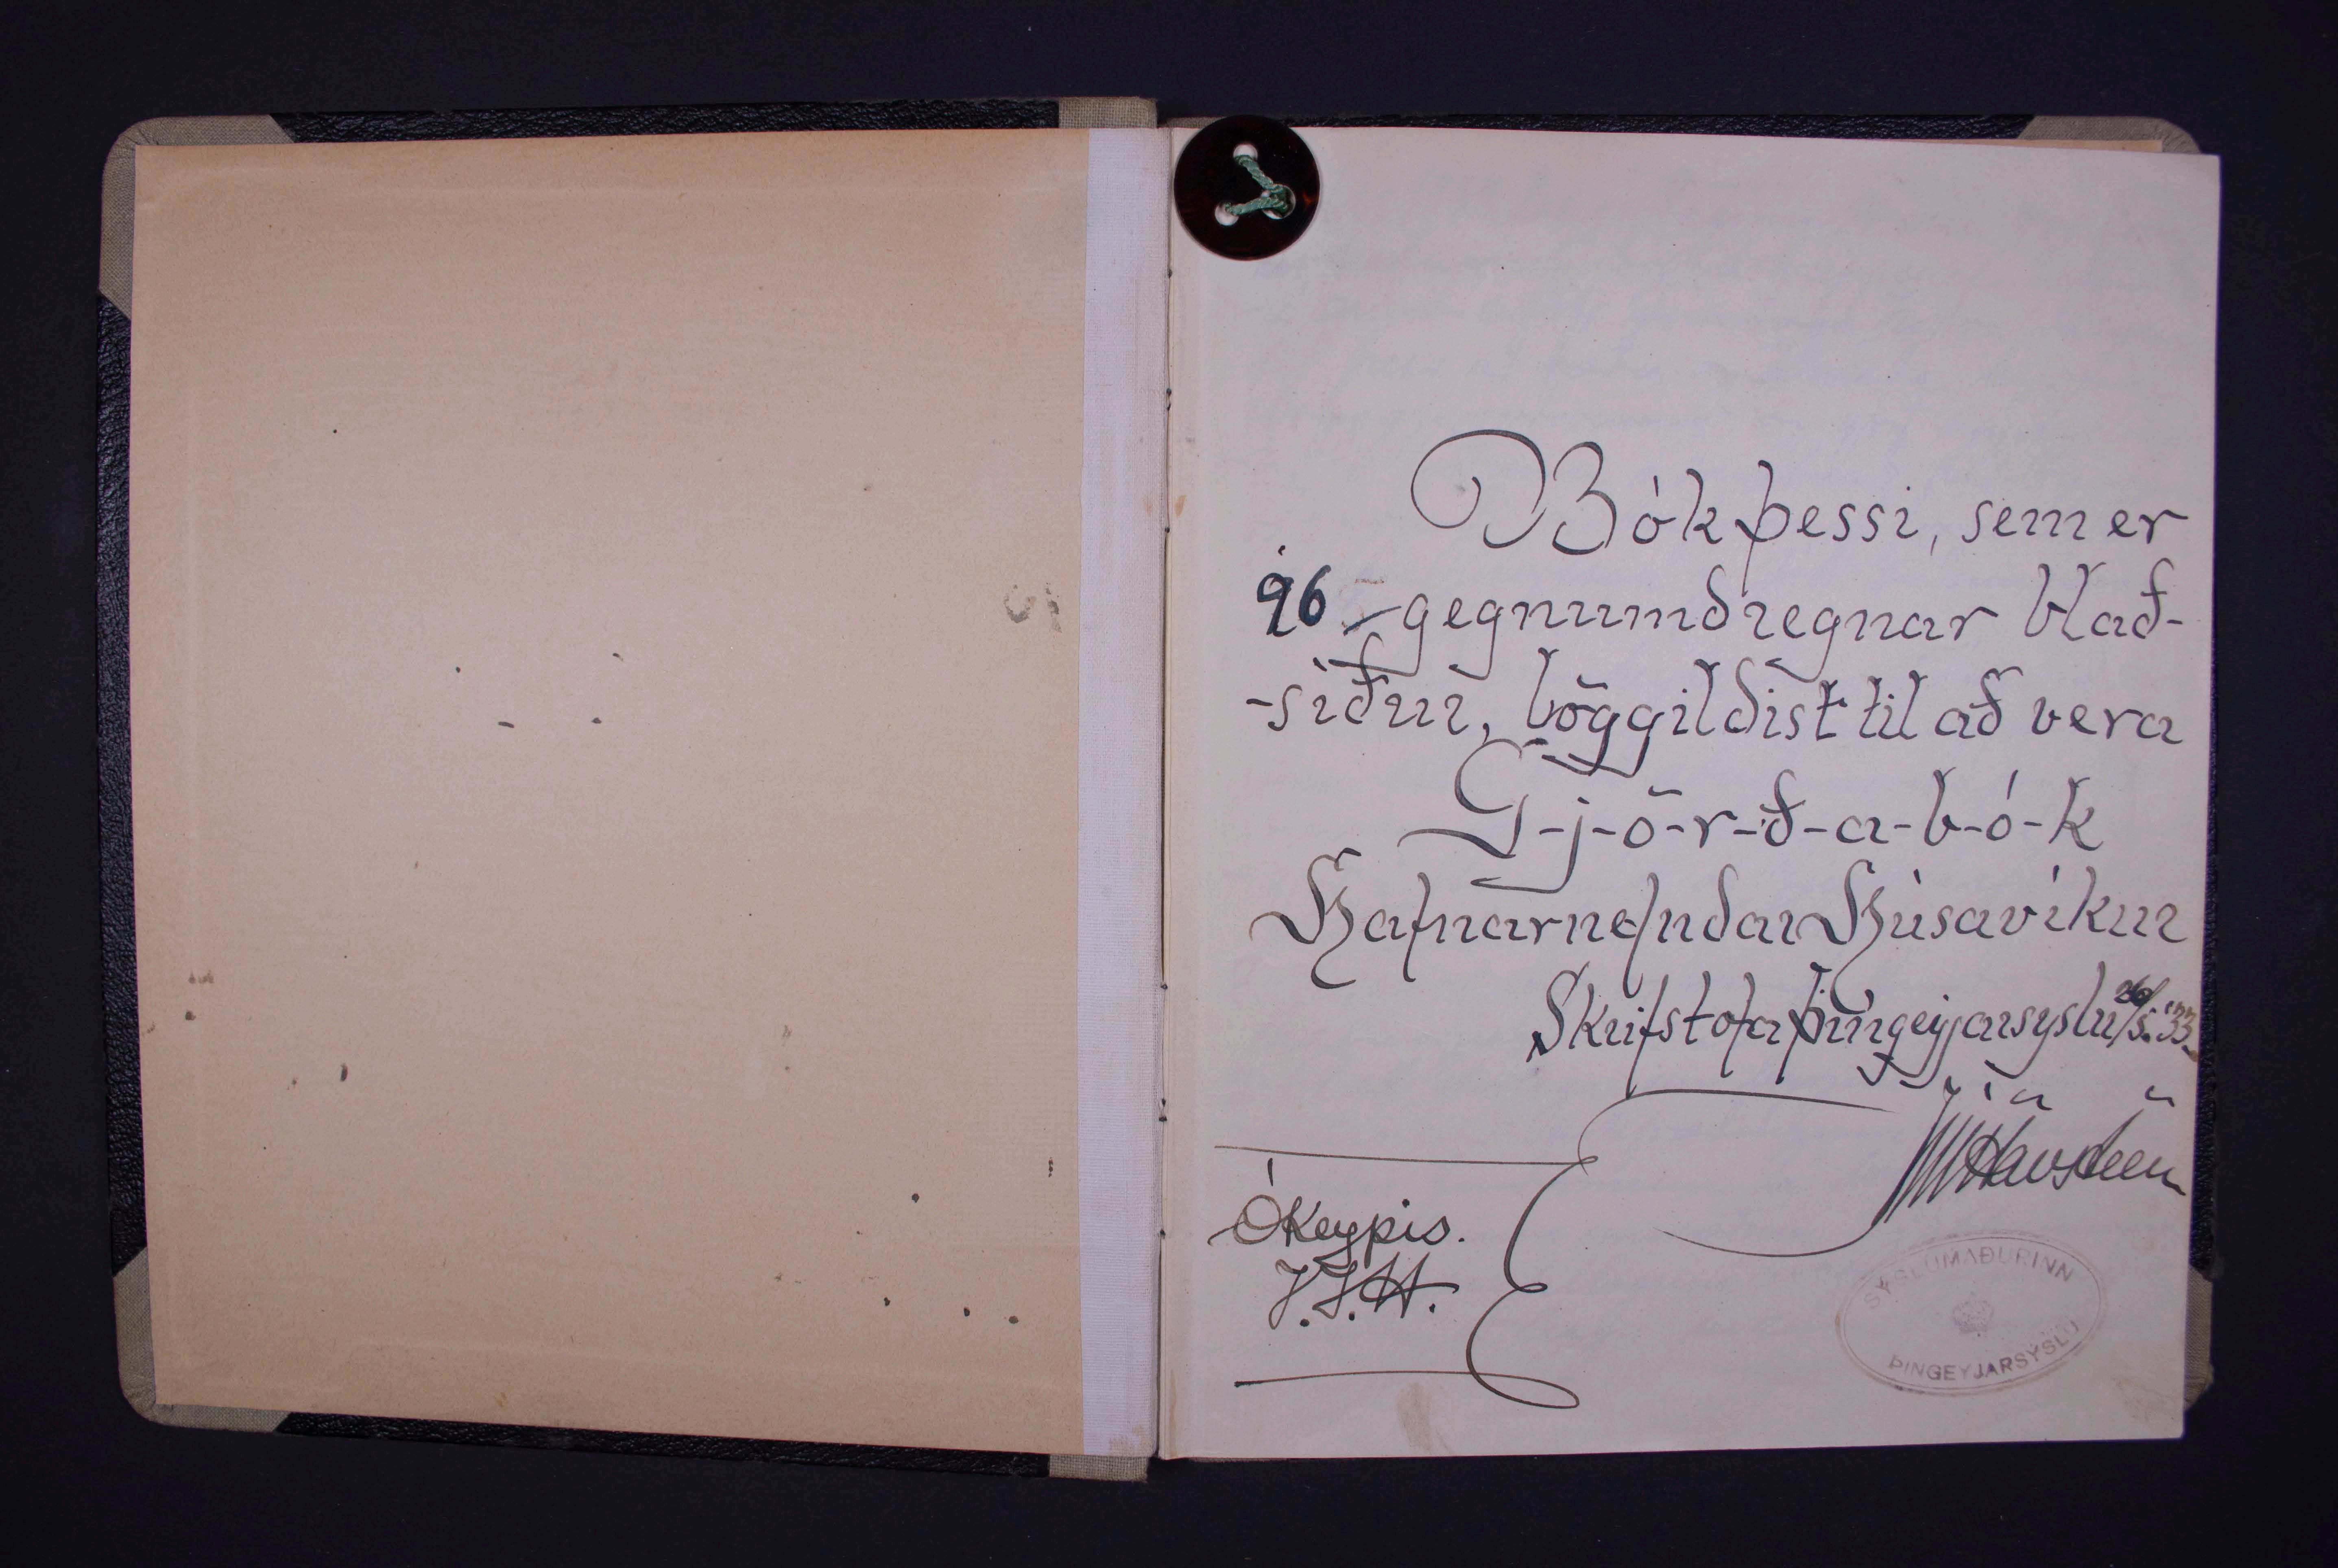 Bók þessi, sem er
96 - gegnumdregnar blað-
-síður, löggildist til að vera
G-j-ö-r-ð-a-b-ó-k
Hafnarnefndar Húsavíkur
Skrifstofa Þingeyjarsýslu 26/5.'33.
JúlHavsteen
Ókeypis.
J.H.
SÝSLUMAÐURINN
ÞINGEYJARSÝSLU